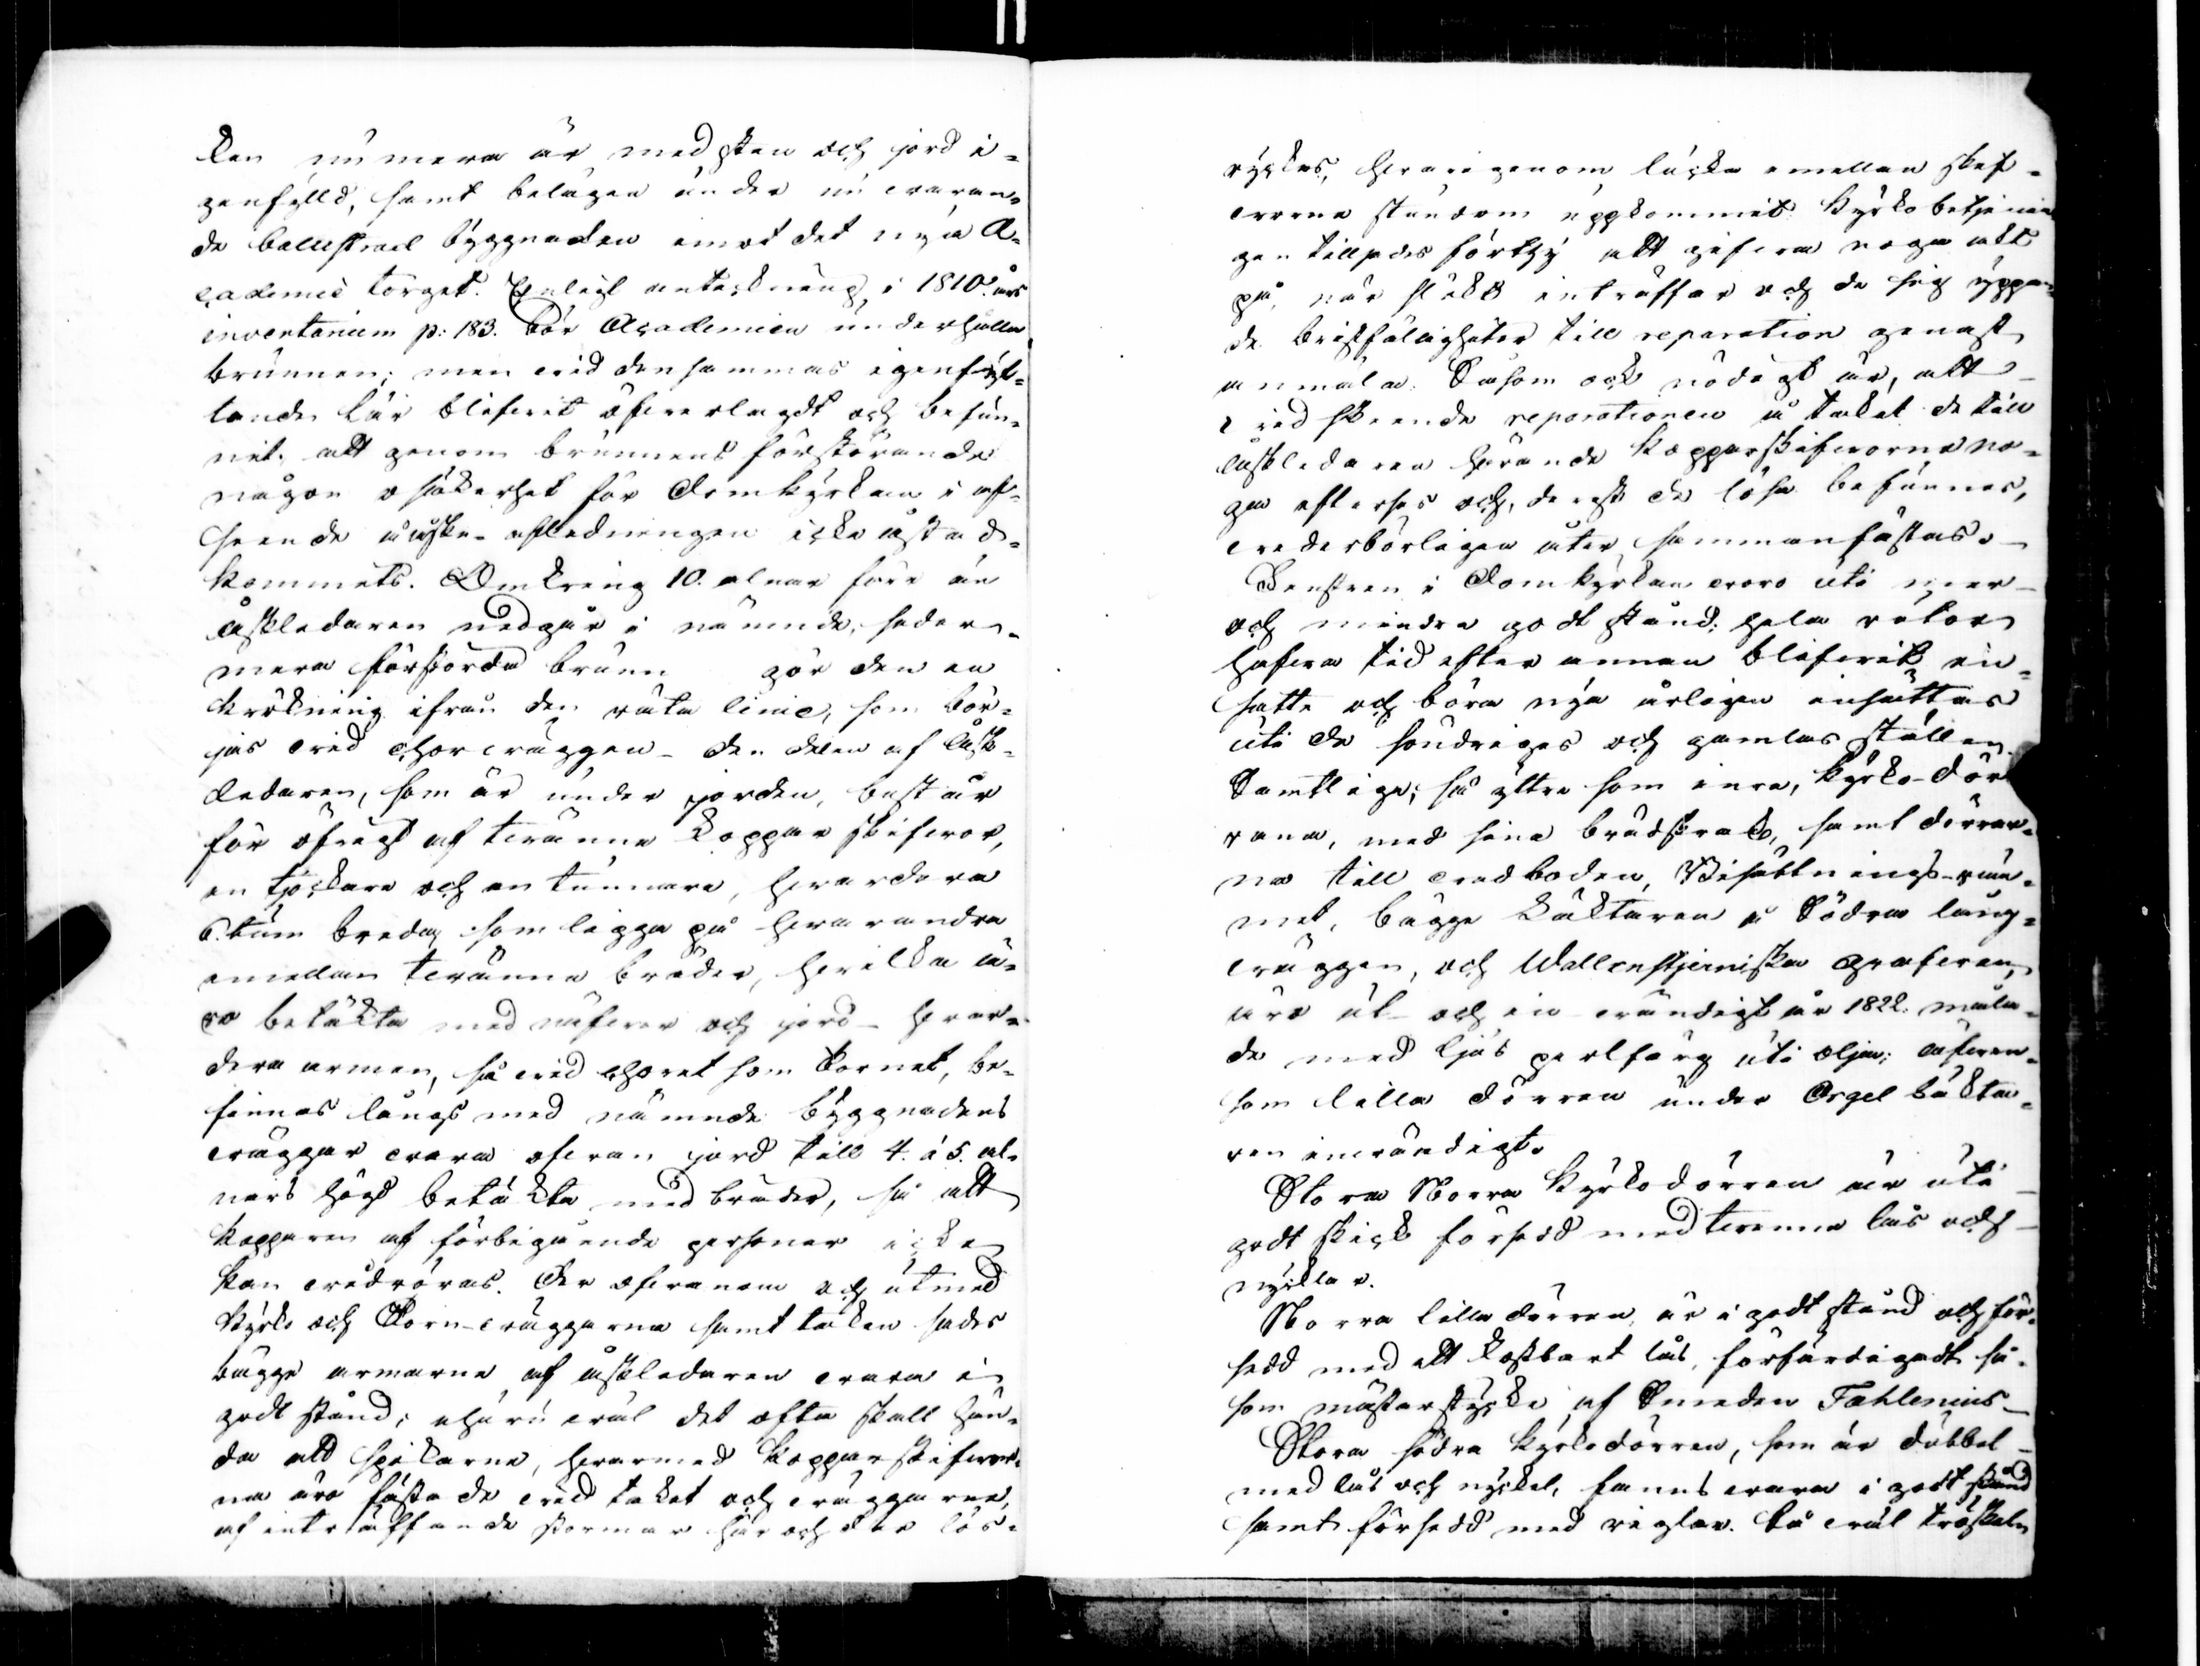 ken nu mera är med sten och jord i-
genfylld, samt belägen under nu waran-
de ballustrad byggnaden emot det nya A-
cademie torget. Enligt anteckning i 1810. års
inventarium p: 183. bör Academien underhålla
brunnen; men wid densammas igenfyl-
lande lär blifwit öfwerlagdt och befun-
nit. att genom brunnens förstörande
någon osäkerhet för Domkyrkan i af-
seende å åske-afledningen icke åstad-
kommits. Omkring 10. alnar förr än
åskledaren nedgår i nämnde, seder-
mera förstörda brunn gör den en
krökning ifrån den räta linie, som bör-
jas wid chorwäggen - den delen af åsk-
ledaren, som är under jorden, består
för öfrigt af twänne koppar skifwor,
en tjockare och en tunnare, hwardera
6. tum breda, som ligga på hwarandra
emellan twänne bräder, hwilka ä-
ro betäkta med näfwer och jord - hwar-
dera armen, så wid choret som tornet, be-
finnes längs med nämnde byggnaders
wäggar wara ofwan jord till 4. á 5. al-
nars högd betäkta med bräder, så att
kopparen af förbigående personer icke
kan widröras. Der ofwanom och utmed
kyrko och Torn-wäggarne samt taken sades
bägge armarne af åskledaren wara i
godt stånd; ehuru wäl det ofta skall hän-
da att spikarne, hwarmed kopparskifwor-
na äro fästade wid taket och wäggarne,
af inträffande stormar här och der lös-
ryckas, hwarigenom lucka emellan skif-
worna stundom uppkommit. Kyrkobetjenin
gen tillsades förthy att gifwa noga akt
på, när slikt inträffar och de sig yppan-
de bristfälligheter till reparation genast
anmäla. Såsom ock nödigt är, att
wid skeende reparationen å taket de till
åskledaren hörande kopparskifworna no-
ga efterses och, derest de lösa befunnes,
wederbörligen åter sammanfästas. -
Fenstren i Domkyrkan woro uti mer
och mindre godt stånd; hela rutor
hafwa tid efter annan blifwit in-
satte och böra nya årligen insättas
uti de söndriges och gamlas ställen.
Samtlige; så yttre som inre, kyrko-dör
rana, med sina brädstrate, samt dörrar-
na till wedboden, Bisättnings-rum-
met, bägge läktaren å Södra lång-
wäggen, och Wallenstjerniska grafwen,
äro ut- och in-wändigt år 1822. måla-
de med ljus perlfärg uti olja: äfwen-
som lilla dörren under Orgel läkta-
ren inwändigt.
Stora Norra Kyrkodörren är uti
godt skick försedd med twenne lås och
nycklar.
Norra lilla dörren är i godt stånd och för-
sedd med ett kostbart lås, förfärdigadt så-
som mästerstycke af Smeden Fahlenius -
Stora södra kyrkodörren, som är dubbel
med lås och nyckel, fanns wara i godt stånd
samt försedd med riglar. Så wäl tröskeln